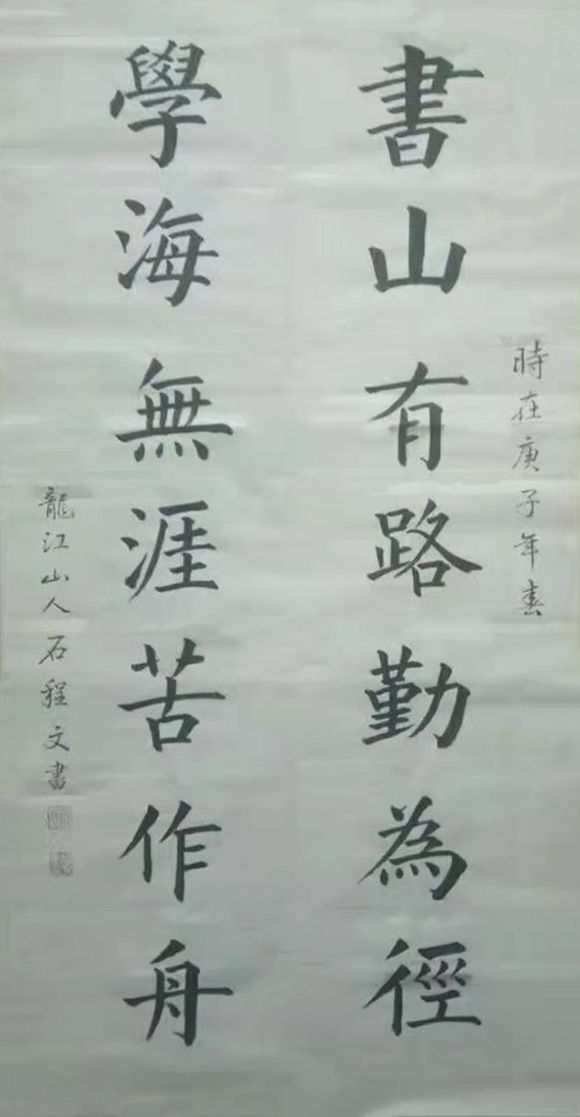 時在庚子年春
書山有路勤為徑
學海無涯苦作舟
龍江山人石程文書